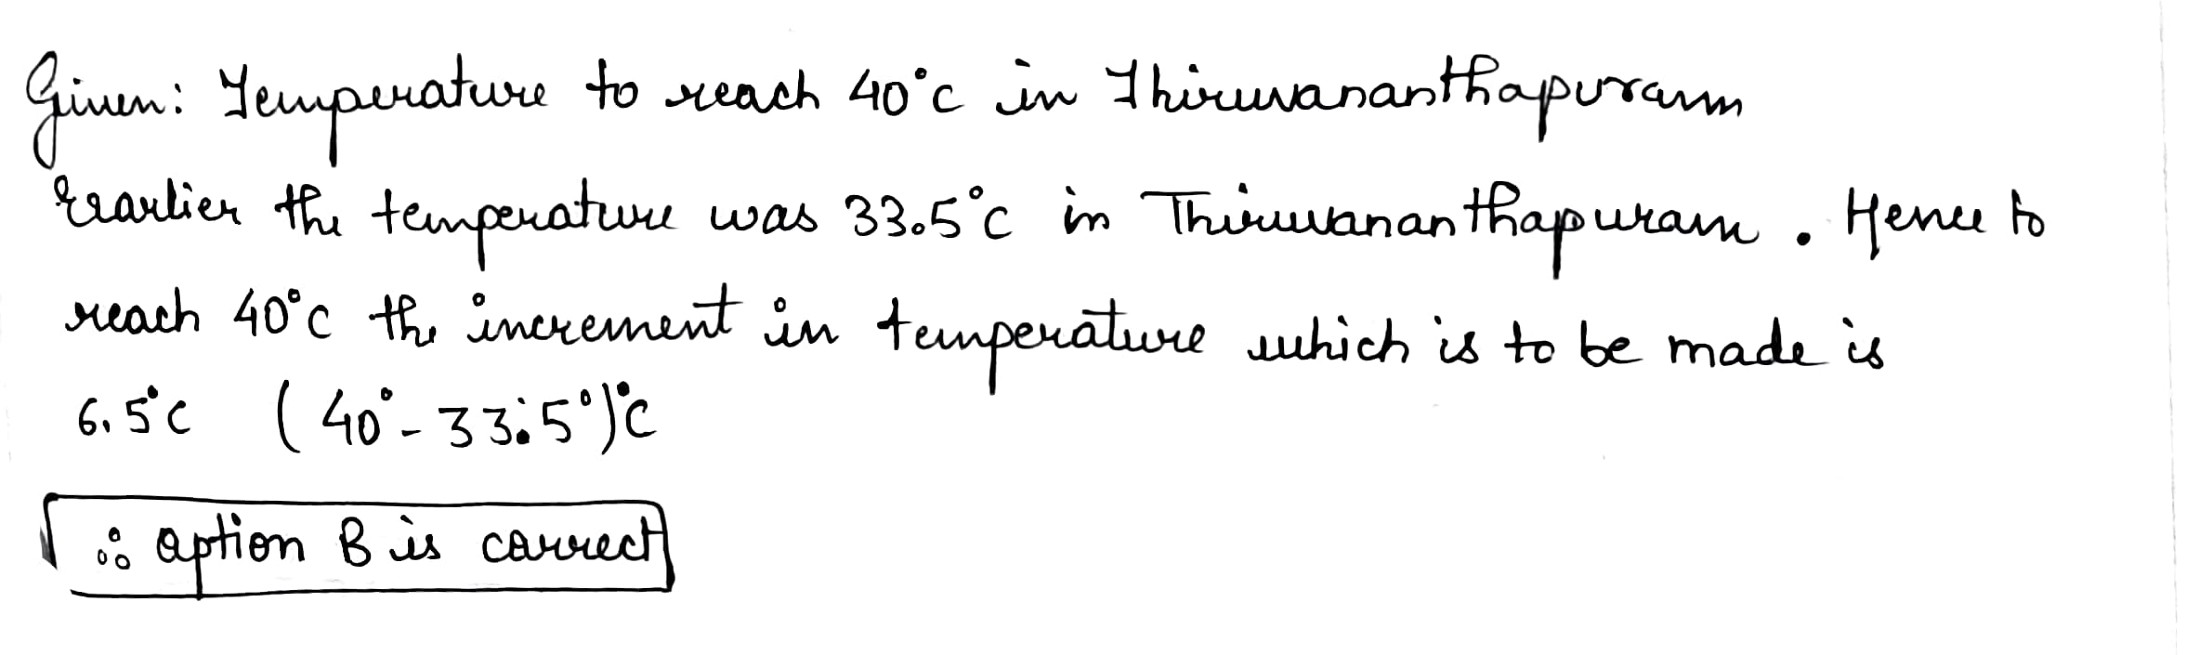 Given: Temperature to reach 40°c in Thiruvananthapuram
Erarlier the temperature was 33.5°c in Thiruvananthapuram. Hence to
reach 40°c the increment in temperature which is to be made is
6.5°c (40° - 33.5°)°c
∴ option B is correct